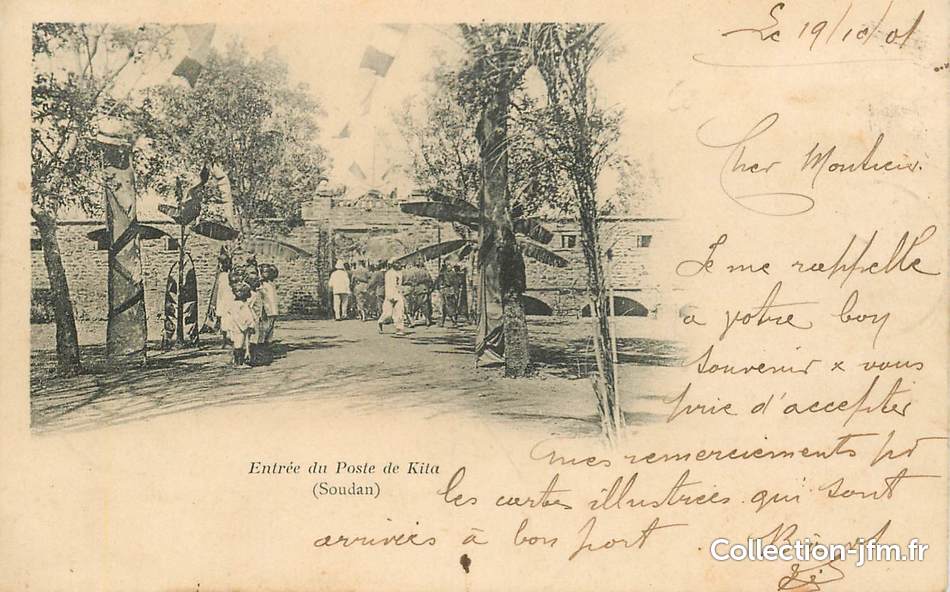 Le 19/10/01
Cher Monsieur
Je me rappelle
a votre bon
souvenir & vous
prie d'accepter
mes remerciements pr
les cartes illustrées qui sont
arrivées à bon port
Entrée du Poste de Kita
(Soudan)
Collection-jfm.fr